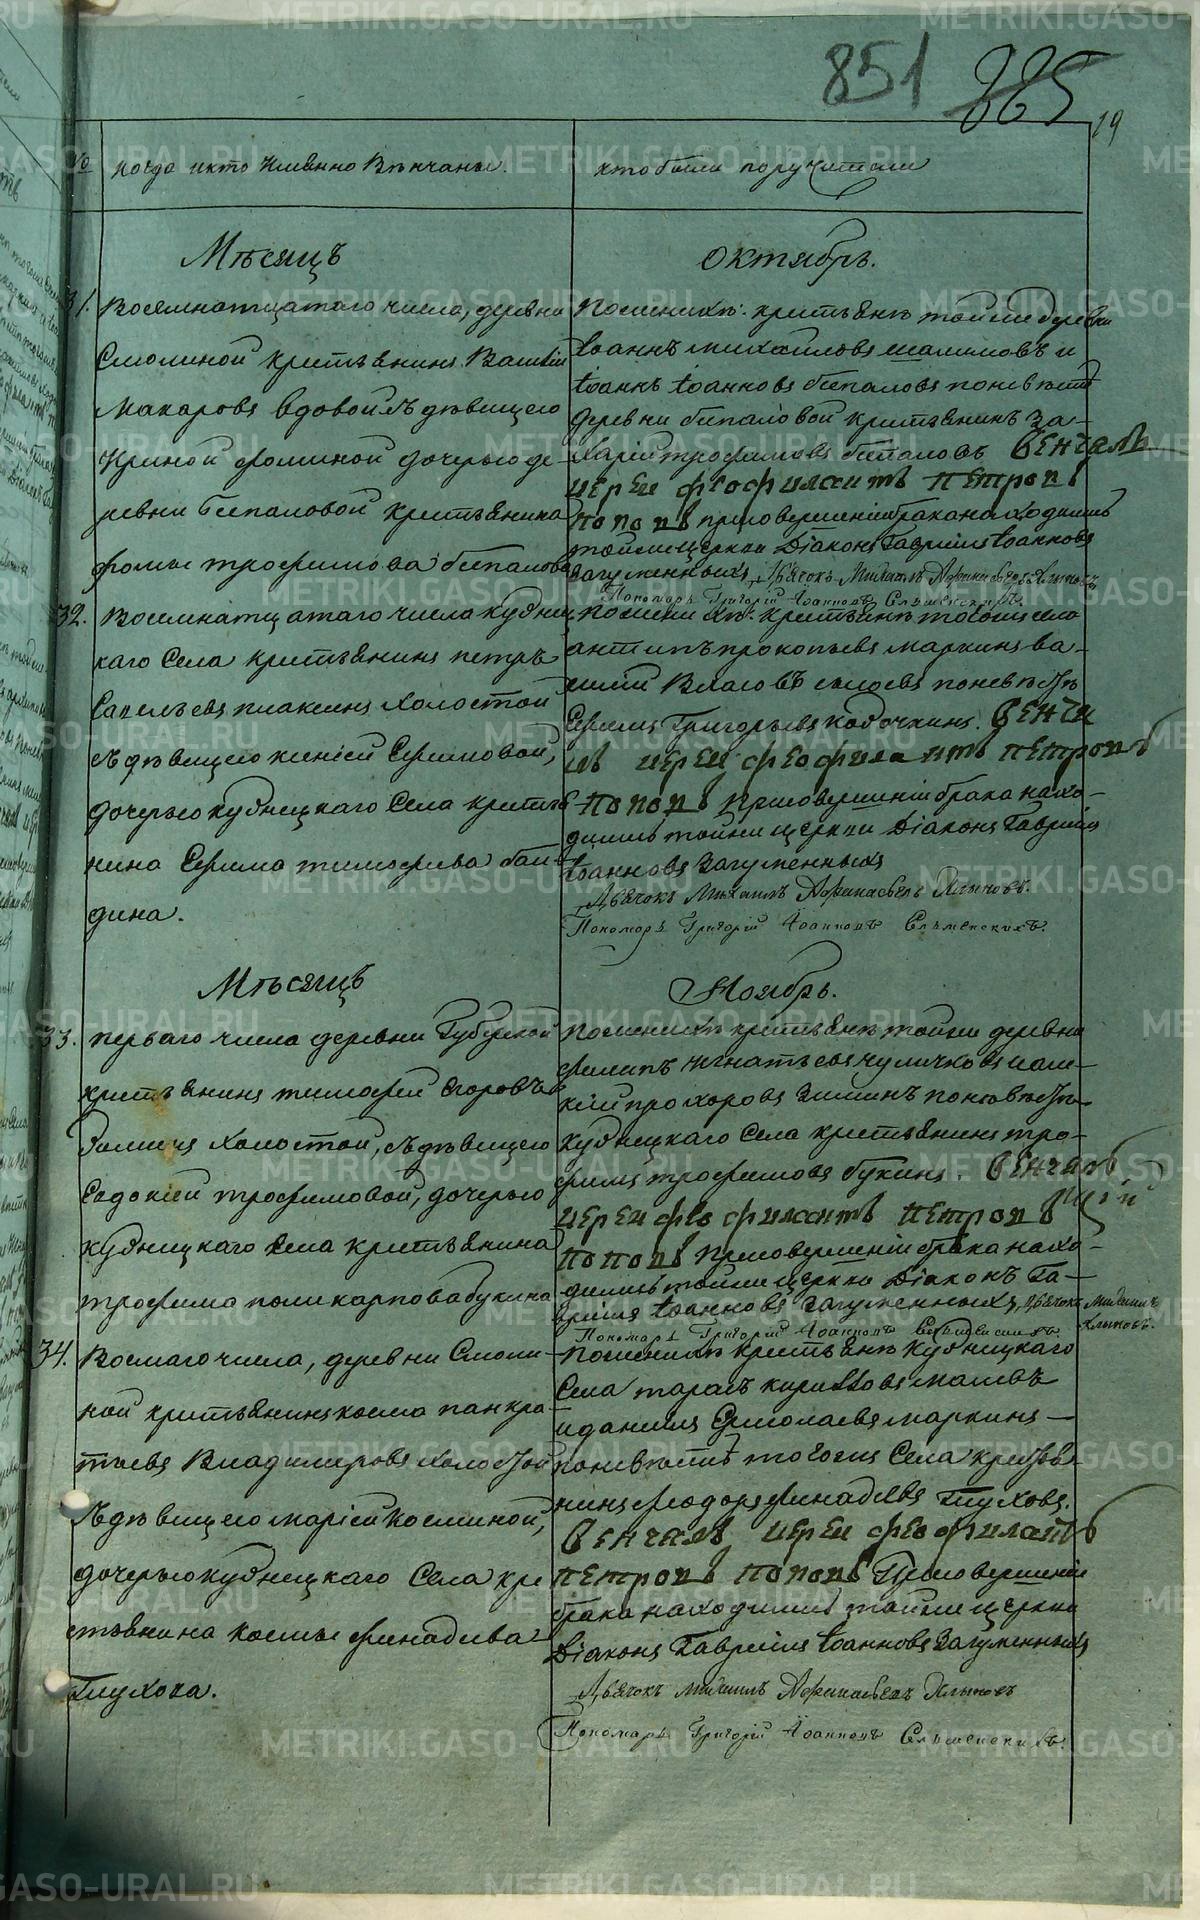 851 385
19
№ когда и кто именно Венчаны.
кто были поручители
Месяцъ
Октябрь.
31. Восемнатцатаго числа, деревни
Смолиной крестьянинъ Василій
Макаровъ вдовой съ девицею
Ириной фоминой дочерью де-
ревни беспаловой крестьянина
фомы трофимова беспалова
По женихе: крестьяне той же деревни
Іоаннъ михайловъ шалимовъ и
Іоаннъ Іоанновъ беспаловъ по невесте
деревни беспаловой крестьянинъ за-
харій трофимовъ беспаловъ Венчалъ
иереи феофилактъ петровъ
поповъ при совершеніи брака находились
той же церкви Діаконъ Гавріилъ Іоанновъ
Загуменныхъ, Дьячокъ Михаилъ Афанасьевъ Клыковъ
Пономарь Григорій Іоанновъ
32. Восемнатцатаго числа кудниц
каго Села крестьянинъ петръ
Савельевъ плаксинъ холостой
съ девицею ксеніей Ефимовой,
дочерью кудницкаго Села крестья
нина Ефима тимофеева бай-
дина.
По жени хе: крестьяне того же села
антипъ прокопьевъ маркинъ ва-
силій Власовъ по невесте
Ефимъ Григорьевъ кабочкинъ. Венча
лъ иереи феофилактъ петровъ
поповъ При совершеніи брака нахо-
дились той же церкви Діаконъ Гавріилъ
Іоанновъ Загуменныхъ
Дьячокъ Михаилъ Афанасьевъ Клыковъ.
Пономарь Григорій Іоанновъ
Месяцъ
Ноябрь.
33. перваго числа деревни Губерской
крестьянинъ тимофей Егоровъ
холостой, съ девицею
Евдокіей трофимовой, дочерью
кудницкаго села крестьянина
трофима поликарпова букина
По женихе крестьяне той же деревни
филипъ Игнатьевъ чуличковъ и але-
ксій прохоровъ Зиминъ по невесте
кудницкаго Села крестьянинъ тро-
фимъ трофимовъ букинъ. Венчалъ
иереи феофилактъ петровъ
поповъ При совершеніи брака нахо-
дились той же церкви Діаконъ Га-
вріилъ Іоанновъ Загуменныхъ, Дьячокъ Михаилъ
Клыковъ.
Пономарь Григорій Іоанновъ
34. Восмаго числа, деревни Смоли-
ной крестьянинъ косма панкра-
тьевъ Владимеровъ холостой
съ девицею маріей косминой,
дочерью кудницкаго Села кре
стьянина космы финадеева
Глухова.
По женихе крестьяне кудницкаго
Села тарасъ кириловъ
и данилъ Ермолаевъ маркинъ —
по невесте того же Села крестья
нинъ феодоръ финадеевъ Глуховъ.
Венчалъ иереи феофилактъ
петровъ поповъ При совершеніи
брака находились той же церкви
Діаконъ Гавріилъ Іоанновъ Загуменныхъ
Дьячокъ Михаилъ Афанасьевъ Клыковъ
Пономарь Григорій Іоанновъ
METRIKI.GASO-URAL.RU